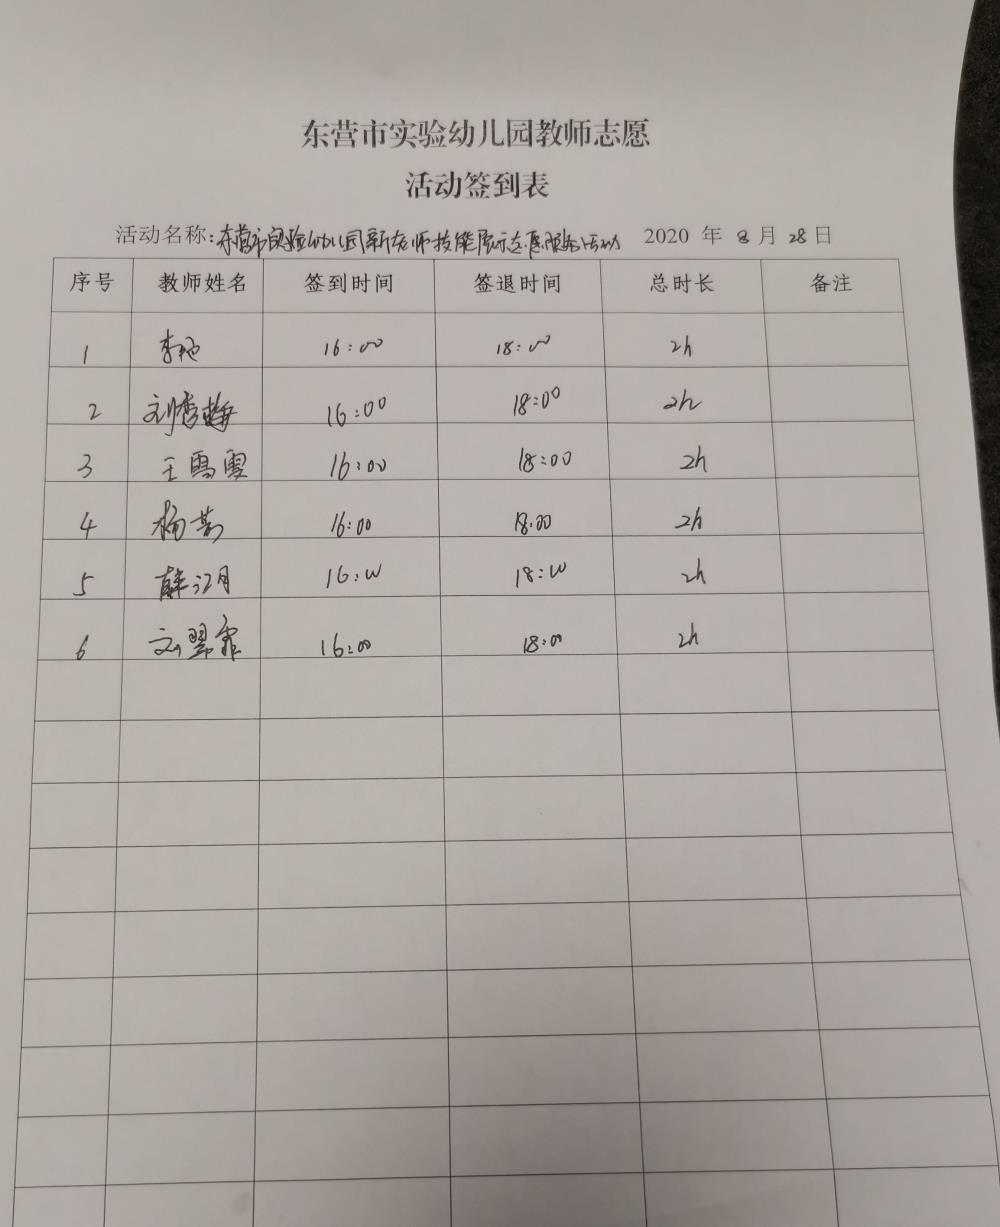 东营市实验幼儿园教师志愿
活动签到表
活动名称:东营市实验幼儿园新老师技能展示志愿服务活动 2020 年 8 月 28 日
序号 教师姓名 签到时间 签退时间 总时长 备注
1 李艳 16:00 18:00 2h
2 刘秀梅 16:00 18:00 2h
3 王雪雯 16:00 18:00 2h
4 杨 16:00 18:00 2h
5 薛江月 16:00 18:00 2h
6 刘翌霏 16:00 18:00 2h